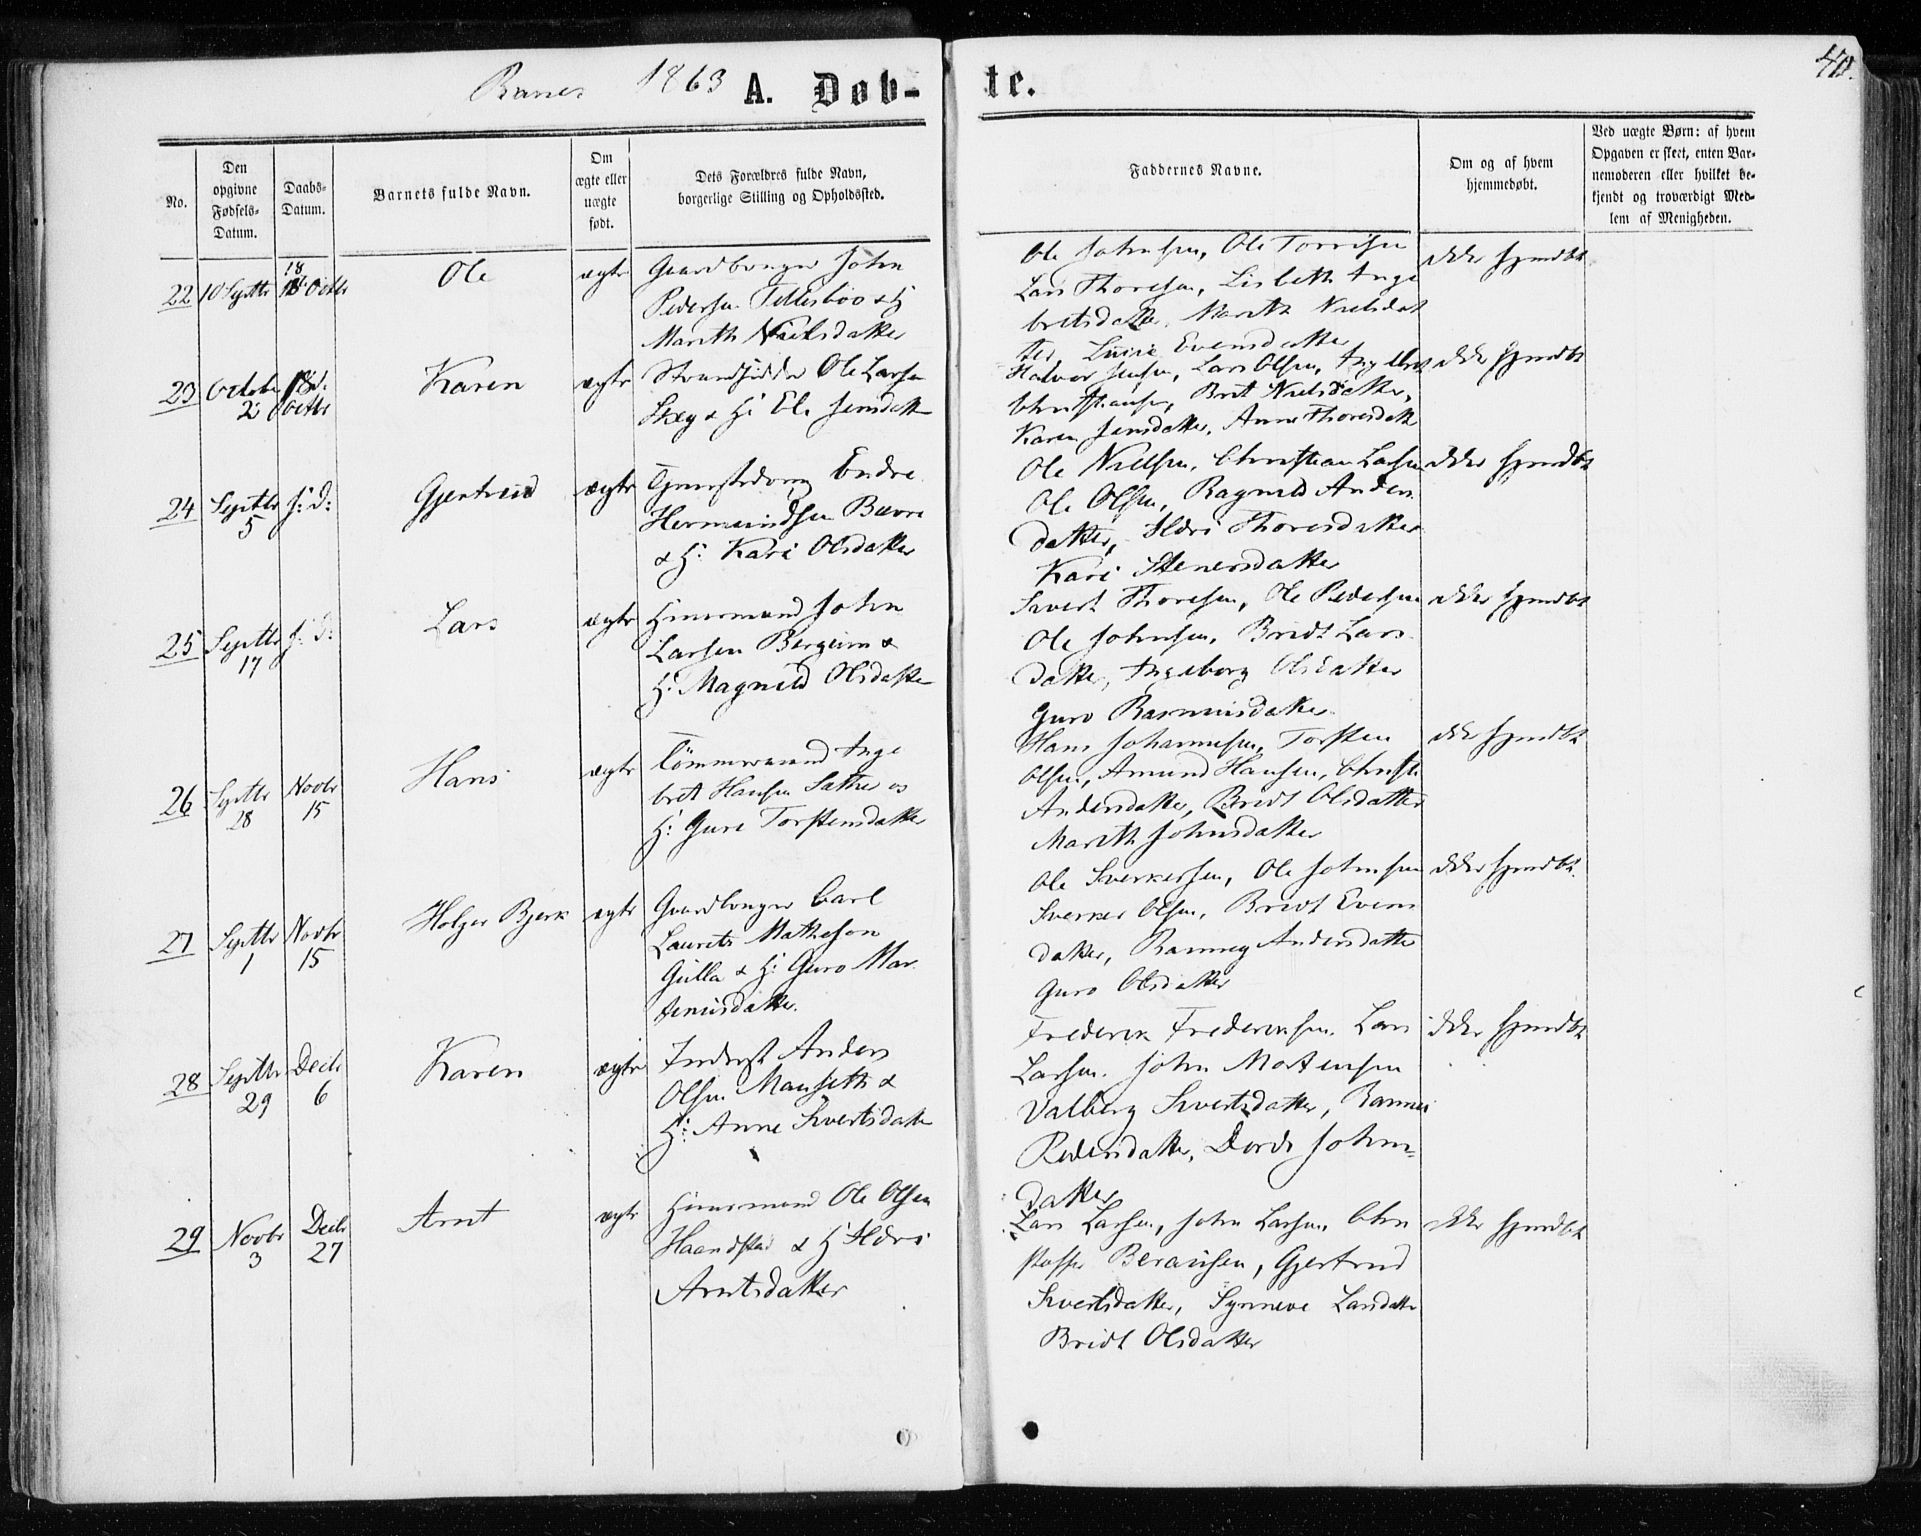 1863 A. Døb-
te.
40.
No.
Den
opgivne
Fødsels-
Datum.
Daabs-
Datum.
Barnets fulde Navn.
Om
ægte eller
uægte
født.
Dets Forældres fulde Navn,
borgerlige Stilling og Opholdssted.
Faddernes Navne.
Om og af hvem
hjemmedøbt.
Ved uægte Børn: af hvem
Opgaven er skeet, enten Bar-
nemoderen eller hvilket be-
kjendt og troværdigt Med-
lem af Menigheden.
22 10 Septbr 18 Octbr
Ole
ægte
Gaardbruger John
Pedersen & H
Marith Nielsdatter
Ole Johnsen, Ole
Lars Thoresen, Lisbeth Inge
bretsdatter, Marith Nielsdat
ter, Evensdatter
ikke hjmdbt
23 October 2 Octbr
Karen
ægte
Strandsidder Ole Larsen
Skey & H: Jensdatter
Halvor Jensen, Lars Olsen, Ingebret
Christiansen, Brit Nielsdatter,
Karen Jensdatter, Anne Thoresdatter
ikke hjmdbt
24 Septbr 5 s: d:
Gjertrud
ægte
Endre
Hermundsen Bævre
& H: Kari Olsdatter
Ole Nielsen, Christian Larsen
Ole Olsen, Ragnild Anders
datter, Sidri Thoresdatter
Kari Stenersdatter
ikke hjmdbt
25 Septbr 17 s: d:
Lars
ægte
Huusmand John
Larsen Bergeim &
H: Magnild Olsdatter
Sivert Thoresen, Ole Pedersen
Ole Johnsen, Bridt Lars
datter, Ingeborg Olsdatter
Guro Rasmusdatter
ikke hjmdbt
26 Septbr 28 Novbr 15
Hans
ægte
Tömmermand Inge
bret Hansen Sæther og
H: Guro Torstensdatter
Hans Johannesen, Torsten
Olsen, Amund Hansen, Christi
Andersdatter, Bridt Olsdatter
Marith Johnsdatter
ikke hjmdbt
27 Septbr 1 Novbr 15
Holger Bjerk
ægte
Gaardbruger Carl
Laurits Matheson
Gulla & H: Guro Mar
tinusdatter.
Ole Sverkersen, Ole Johnsen
Sverker Olsen, Bridt Evens
datter, Ranney Andersdatter
Guro Olsdatter
ikke hjmdbt.
28 Septbr 29 Decbr 6
Karen
ægte
Inderst Anders
Olsen Mauseth &
H: Anne Sivertsdatter
Frederik Frederiksen, Lars
Larsen, John Mortensen
Valborg Sivertsdatter,
Pedersdatter, Dordi Johns-
datter
ikke hjmdbt
29 Novbr 3 Decbr 27
Arnt
ægte
Huusmand Ole Olsen
Haandstad & H Sidri
Arntsdatter
Lars Larsen, John Larsen, Chri
stoffer Berausen, Gjertrud
Sivertsdatter, Synneve Larsdatter
Bridt Olsdatter
ikke hjmdbt